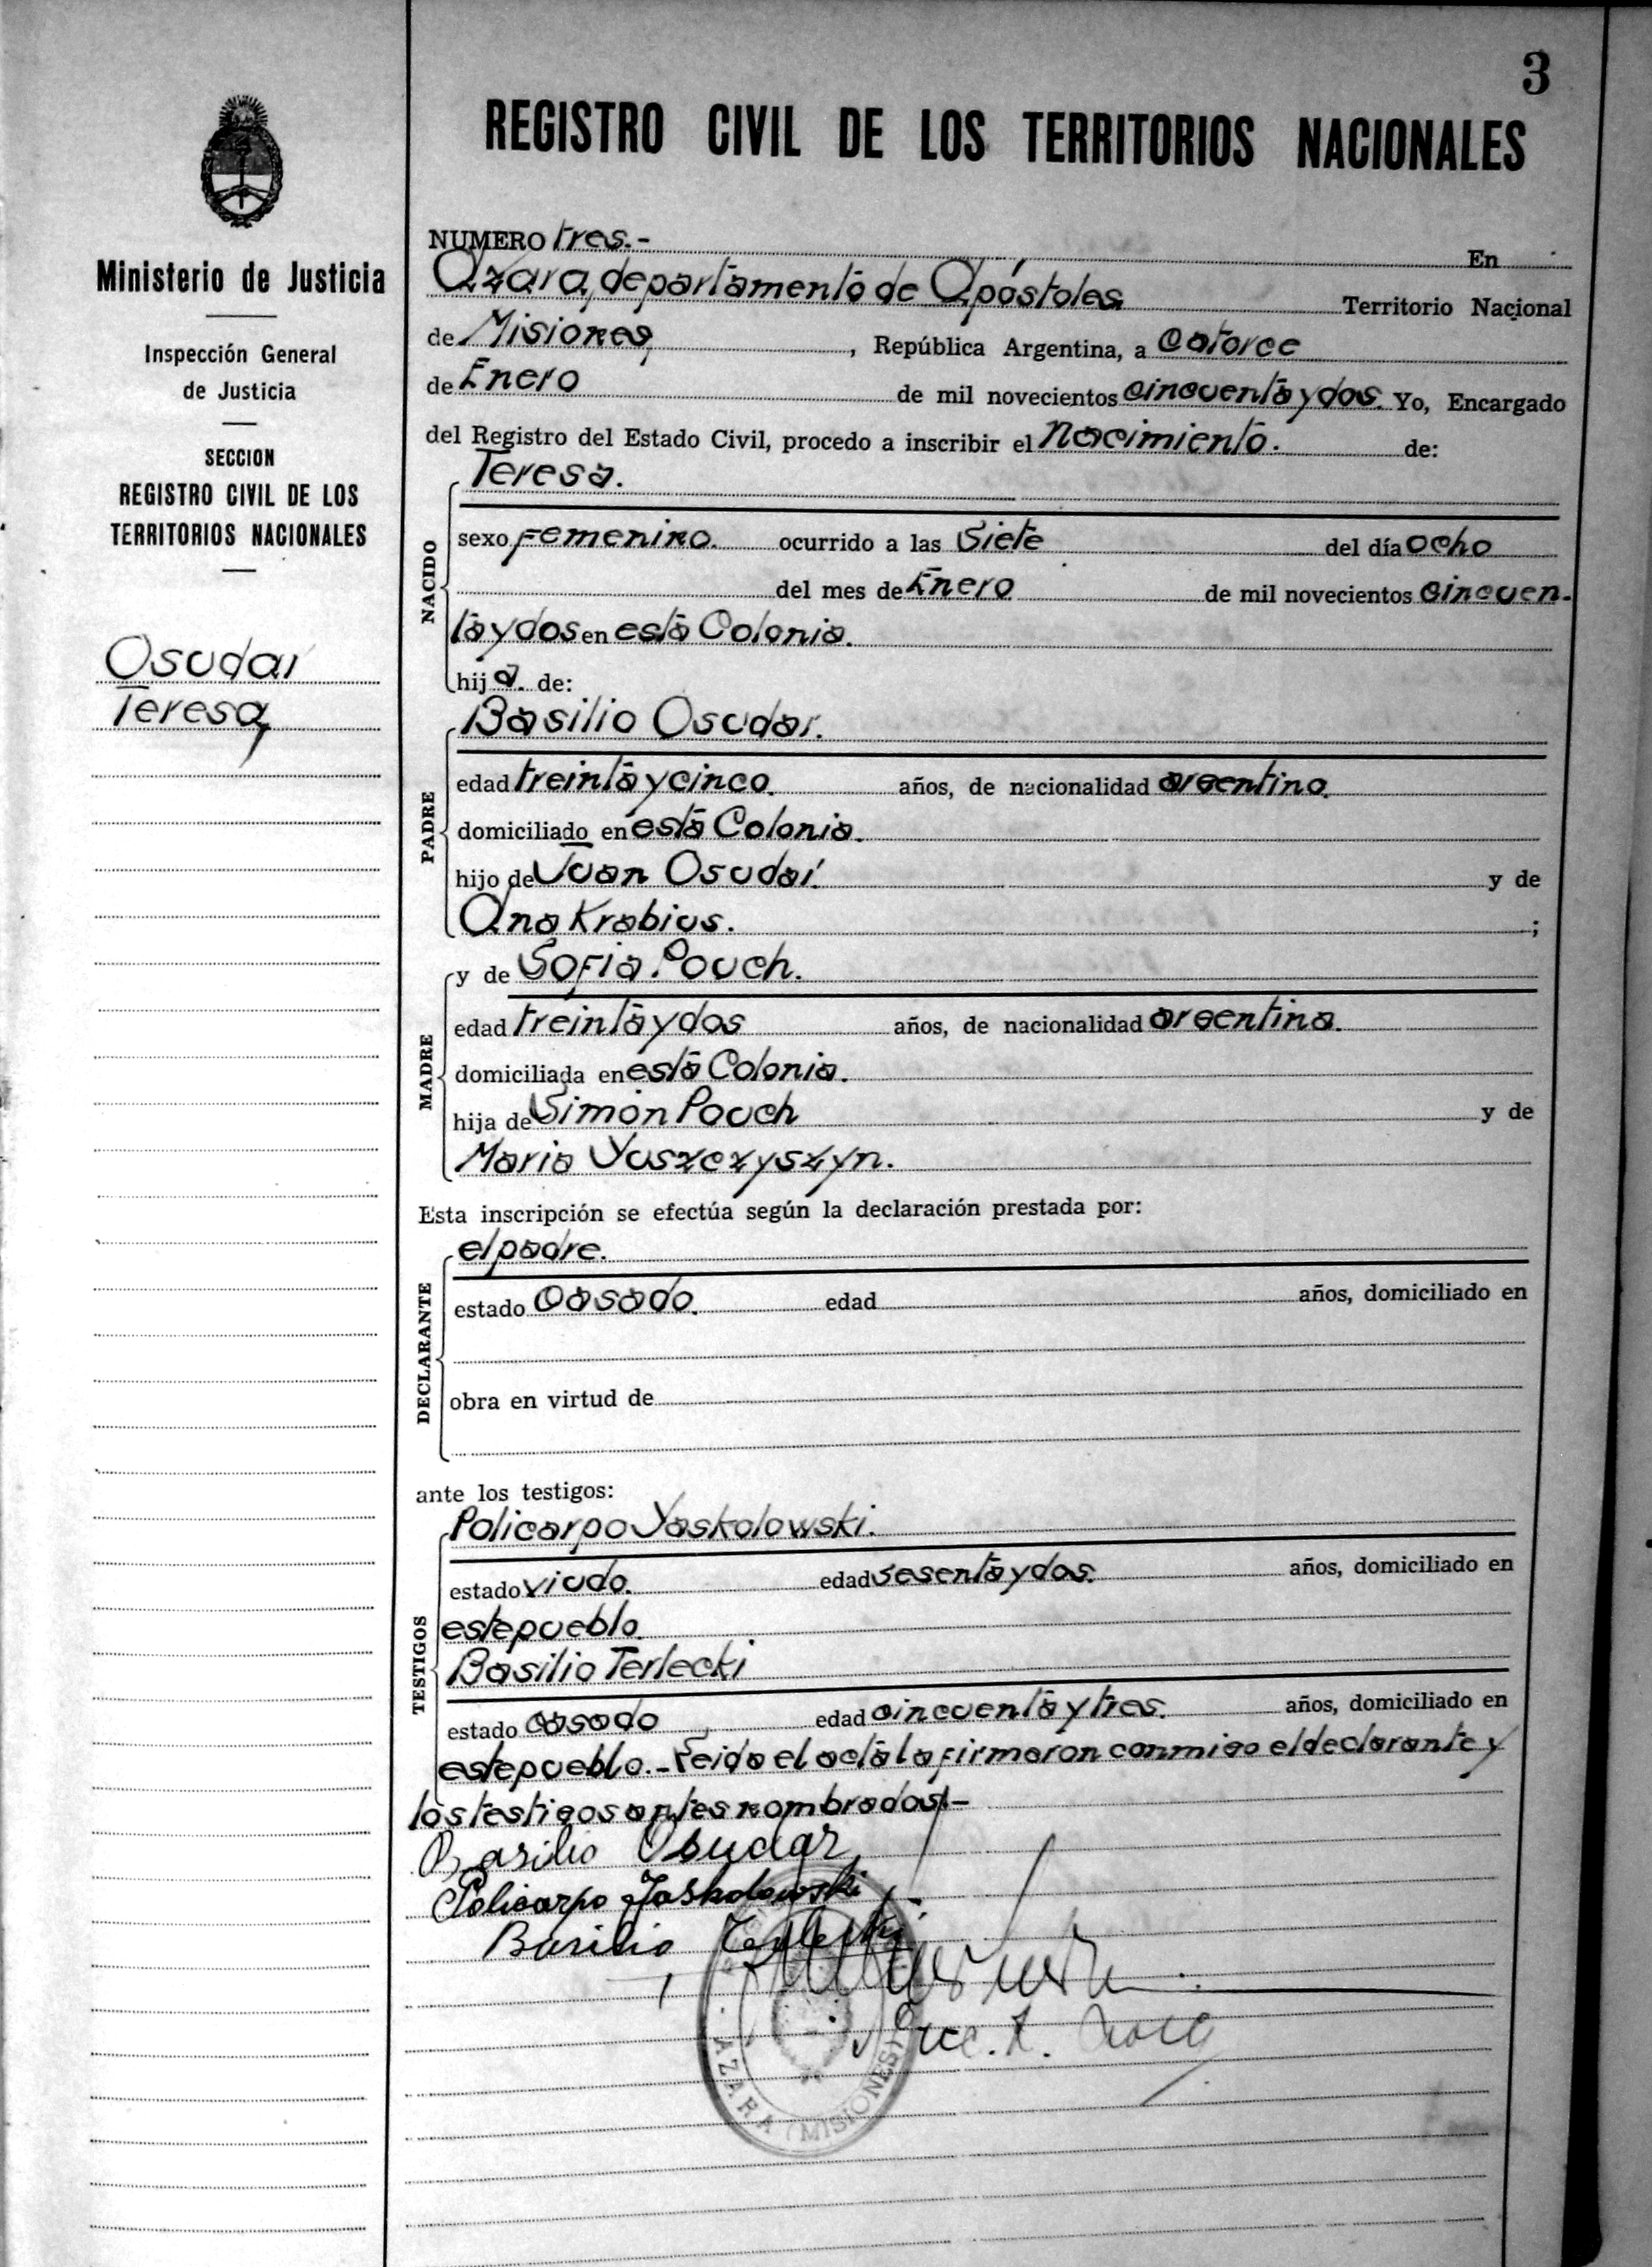 3
REGISTRO CIVIL DE LOS TERRITORIOS NACIONALES
Ministerio de Justicia
Inspección General
de Justicia
SECCION
REGISTRO CIVIL DE LOS
TERRITORIOS NACIONALES
Osudar
Teresa
NUMERO tres.- En
Azara, departamento de Apóstoles Territorio Nacional
de Misiones, , República Argentina, a catorce
de Enero de mil novecientos cincuenta y dos. Yo, Encargado
del Registro del Estado Civil, procedo a inscribir el nacimiento. de:
Teresa.
NACIDO
sexo femenino. ocurrido a las siete del día ocho
del mes de Enero de mil novecientos cincuen-
ta y dos en esta Colonia.
hija. de:
Basilio Osudar.
PADRE
edad treinta y cinco. años, de nacionalidad argentina.
domiciliado en esta Colonia.
hijo de Juan Osudar y de
Ana Krabius. ;
MADRE
y de Sofia Pouch.
edad treinta y dos años, de nacionalidad argentina.
domiciliada en esta Colonia.
hija de Simón Pouch y de
Maria Yuszczyszyn.
Esta inscripción se efectúa según la declaración prestada por:
DECLARANTE
el padre.
estado casado. edad años, domiciliado en
obra en virtud de
ante los testigos:
TESTIGOS
Policarpo Yaskolowski.
estado viudo. edad sesenta y dos. años, domiciliado en
este pueblo.
Basilio Terlecki
estado casado edad cincuenta y tres. años, domiciliado en
este pueblo.- Leida el acta la firmaron conmigo el declarante y
los testigos antes nombrados.-
Basilio Osudar
Policarpo Jaskolowski
Basilio Terlecki
AZARA (MISIONES)